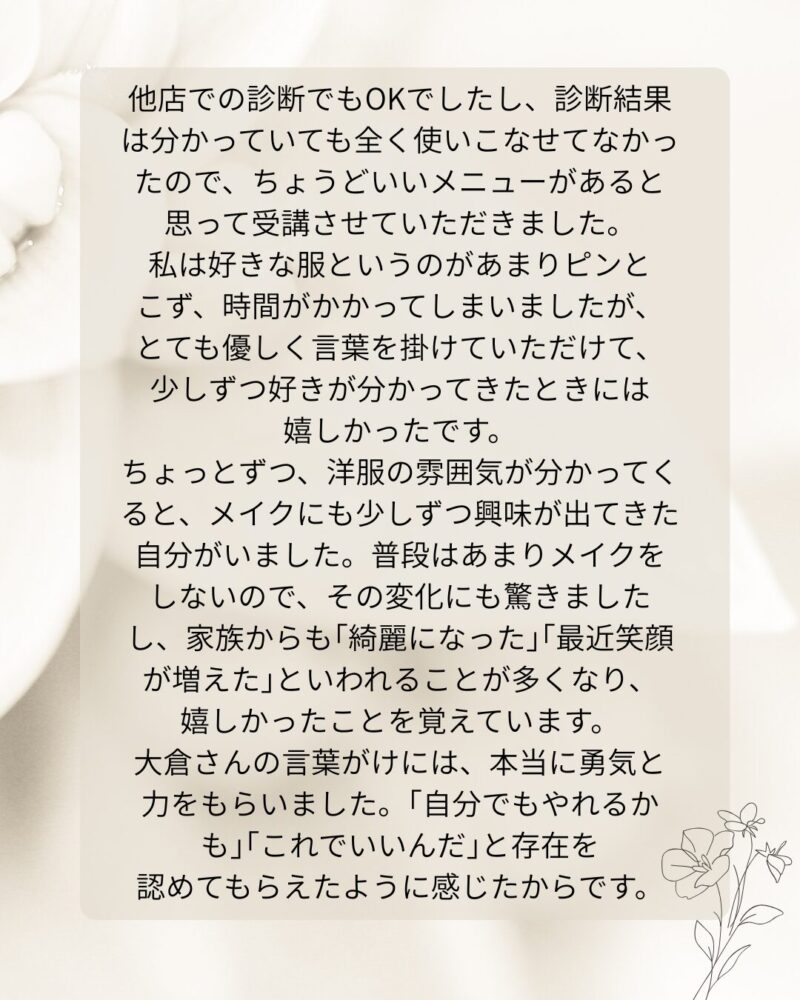 他店での診断でもOKでしたし、診断結果
は分かっていても全く使いこなせてなかっ
たので、ちょうどいいメニューがあると
思って受講させていただきました。
私は好きな服というのがあまりピンと
こず、時間がかかってしまいましたが、
とても優しく言葉を掛けていただけて、
少しずつ好きが分かってきたときには
嬉しかったです。
ちょっとずつ、洋服の雰囲気が分かってく
ると、メイクにも少しずつ興味が出てきた
自分がいました。普段はあまりメイクを
しないので、その変化にも驚きました
し、家族からも「綺麗になった」「最近笑顔
が増えた」といわれることが多くなり、
嬉しかったことを覚えています。
大倉さんの言葉がけには、本当に勇気と
力をもらいました。「自分でもやれるか
も」「これでいいんだ」と存在を
認めてもらえたように感じたからです。